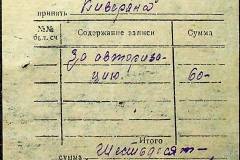 принять "Киверяна"
№№ бух. сч Содержание записи Сумма
За авторіза-
цию. 60-
Итого
сумма Шестьдесят